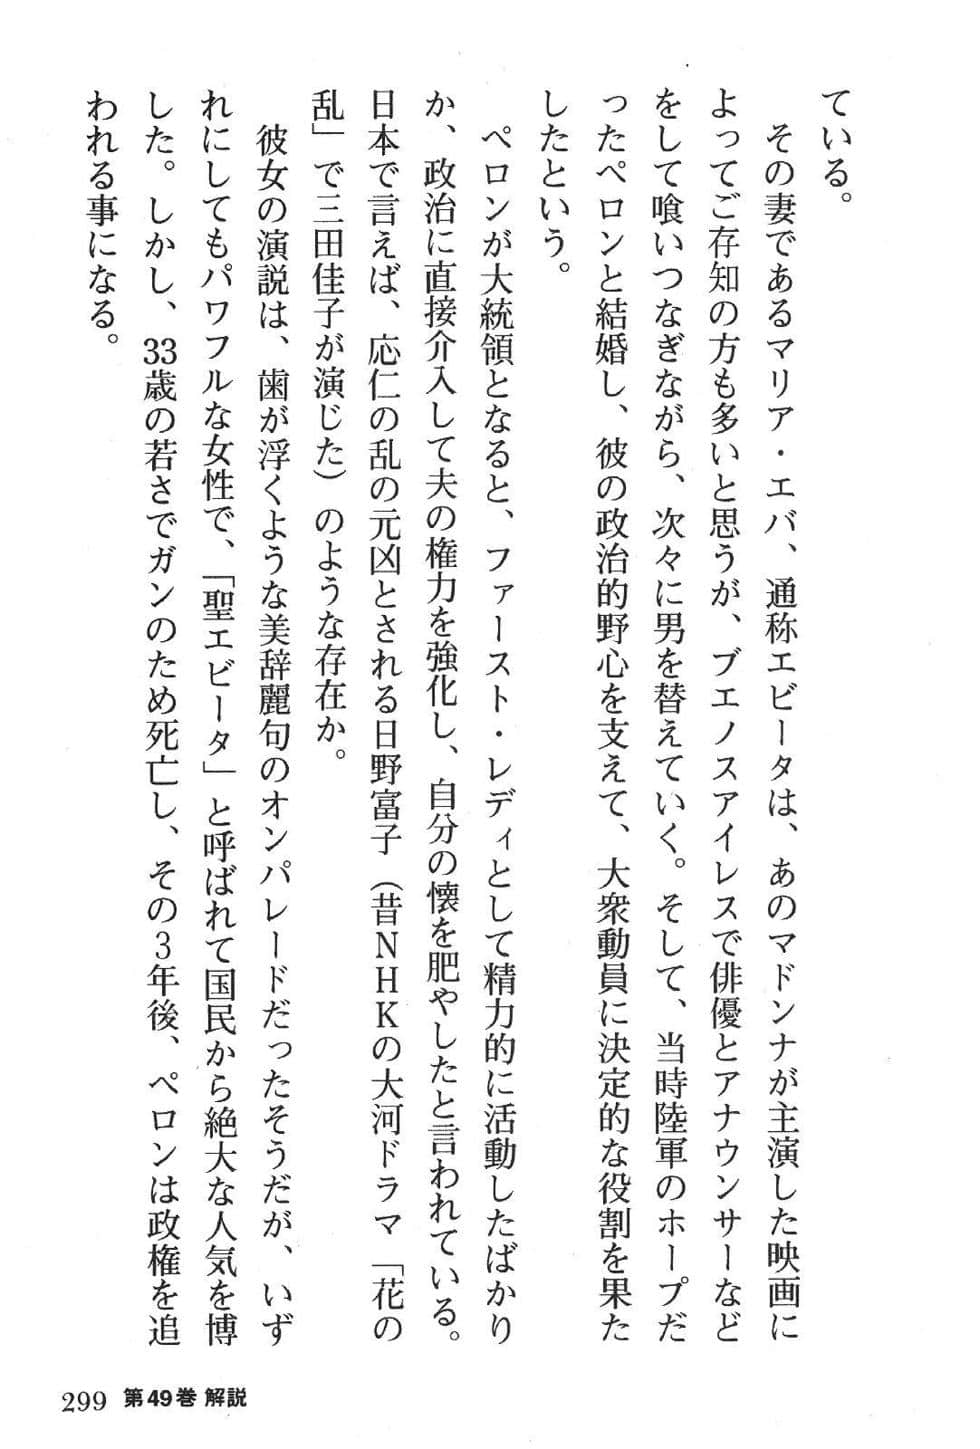 ている。
その妻であるマリア・エバ、通称エビータは、あのマドンナが主演した映画に
よってご存知の方も多いと思うが、ブエノスアイレスで俳優とアナウンサーなど
をして喰いつなぎながら、次々に男を替えていく。そして、当時陸軍のホープだ
ったペロンと結婚し、彼の政治的野心を支えて、大衆動員に決定的な役割を果た
したという。
ペロンが大統領となると、ファースト・レディとして精力的に活動したばかり
か、政治に直接介入して夫の権力を強化し、自分の懐を肥やしたと言われている。
日本で言えば、応仁の乱の元凶とされる日野富子（昔NHKの大河ドラマ「花の
乱」で三田佳子が演じた）のような存在か。
彼女の演説は、歯が浮くような美辞麗句のオンパレードだったそうだが、いず
れにしてもパワフルな女性で、「聖エビータ」と呼ばれて国民から絶大な人気を博
した。しかし、33歳の若さでガンのため死亡し、その3年後、ペロンは政権を追
われる事になる。
299 第49巻 解説